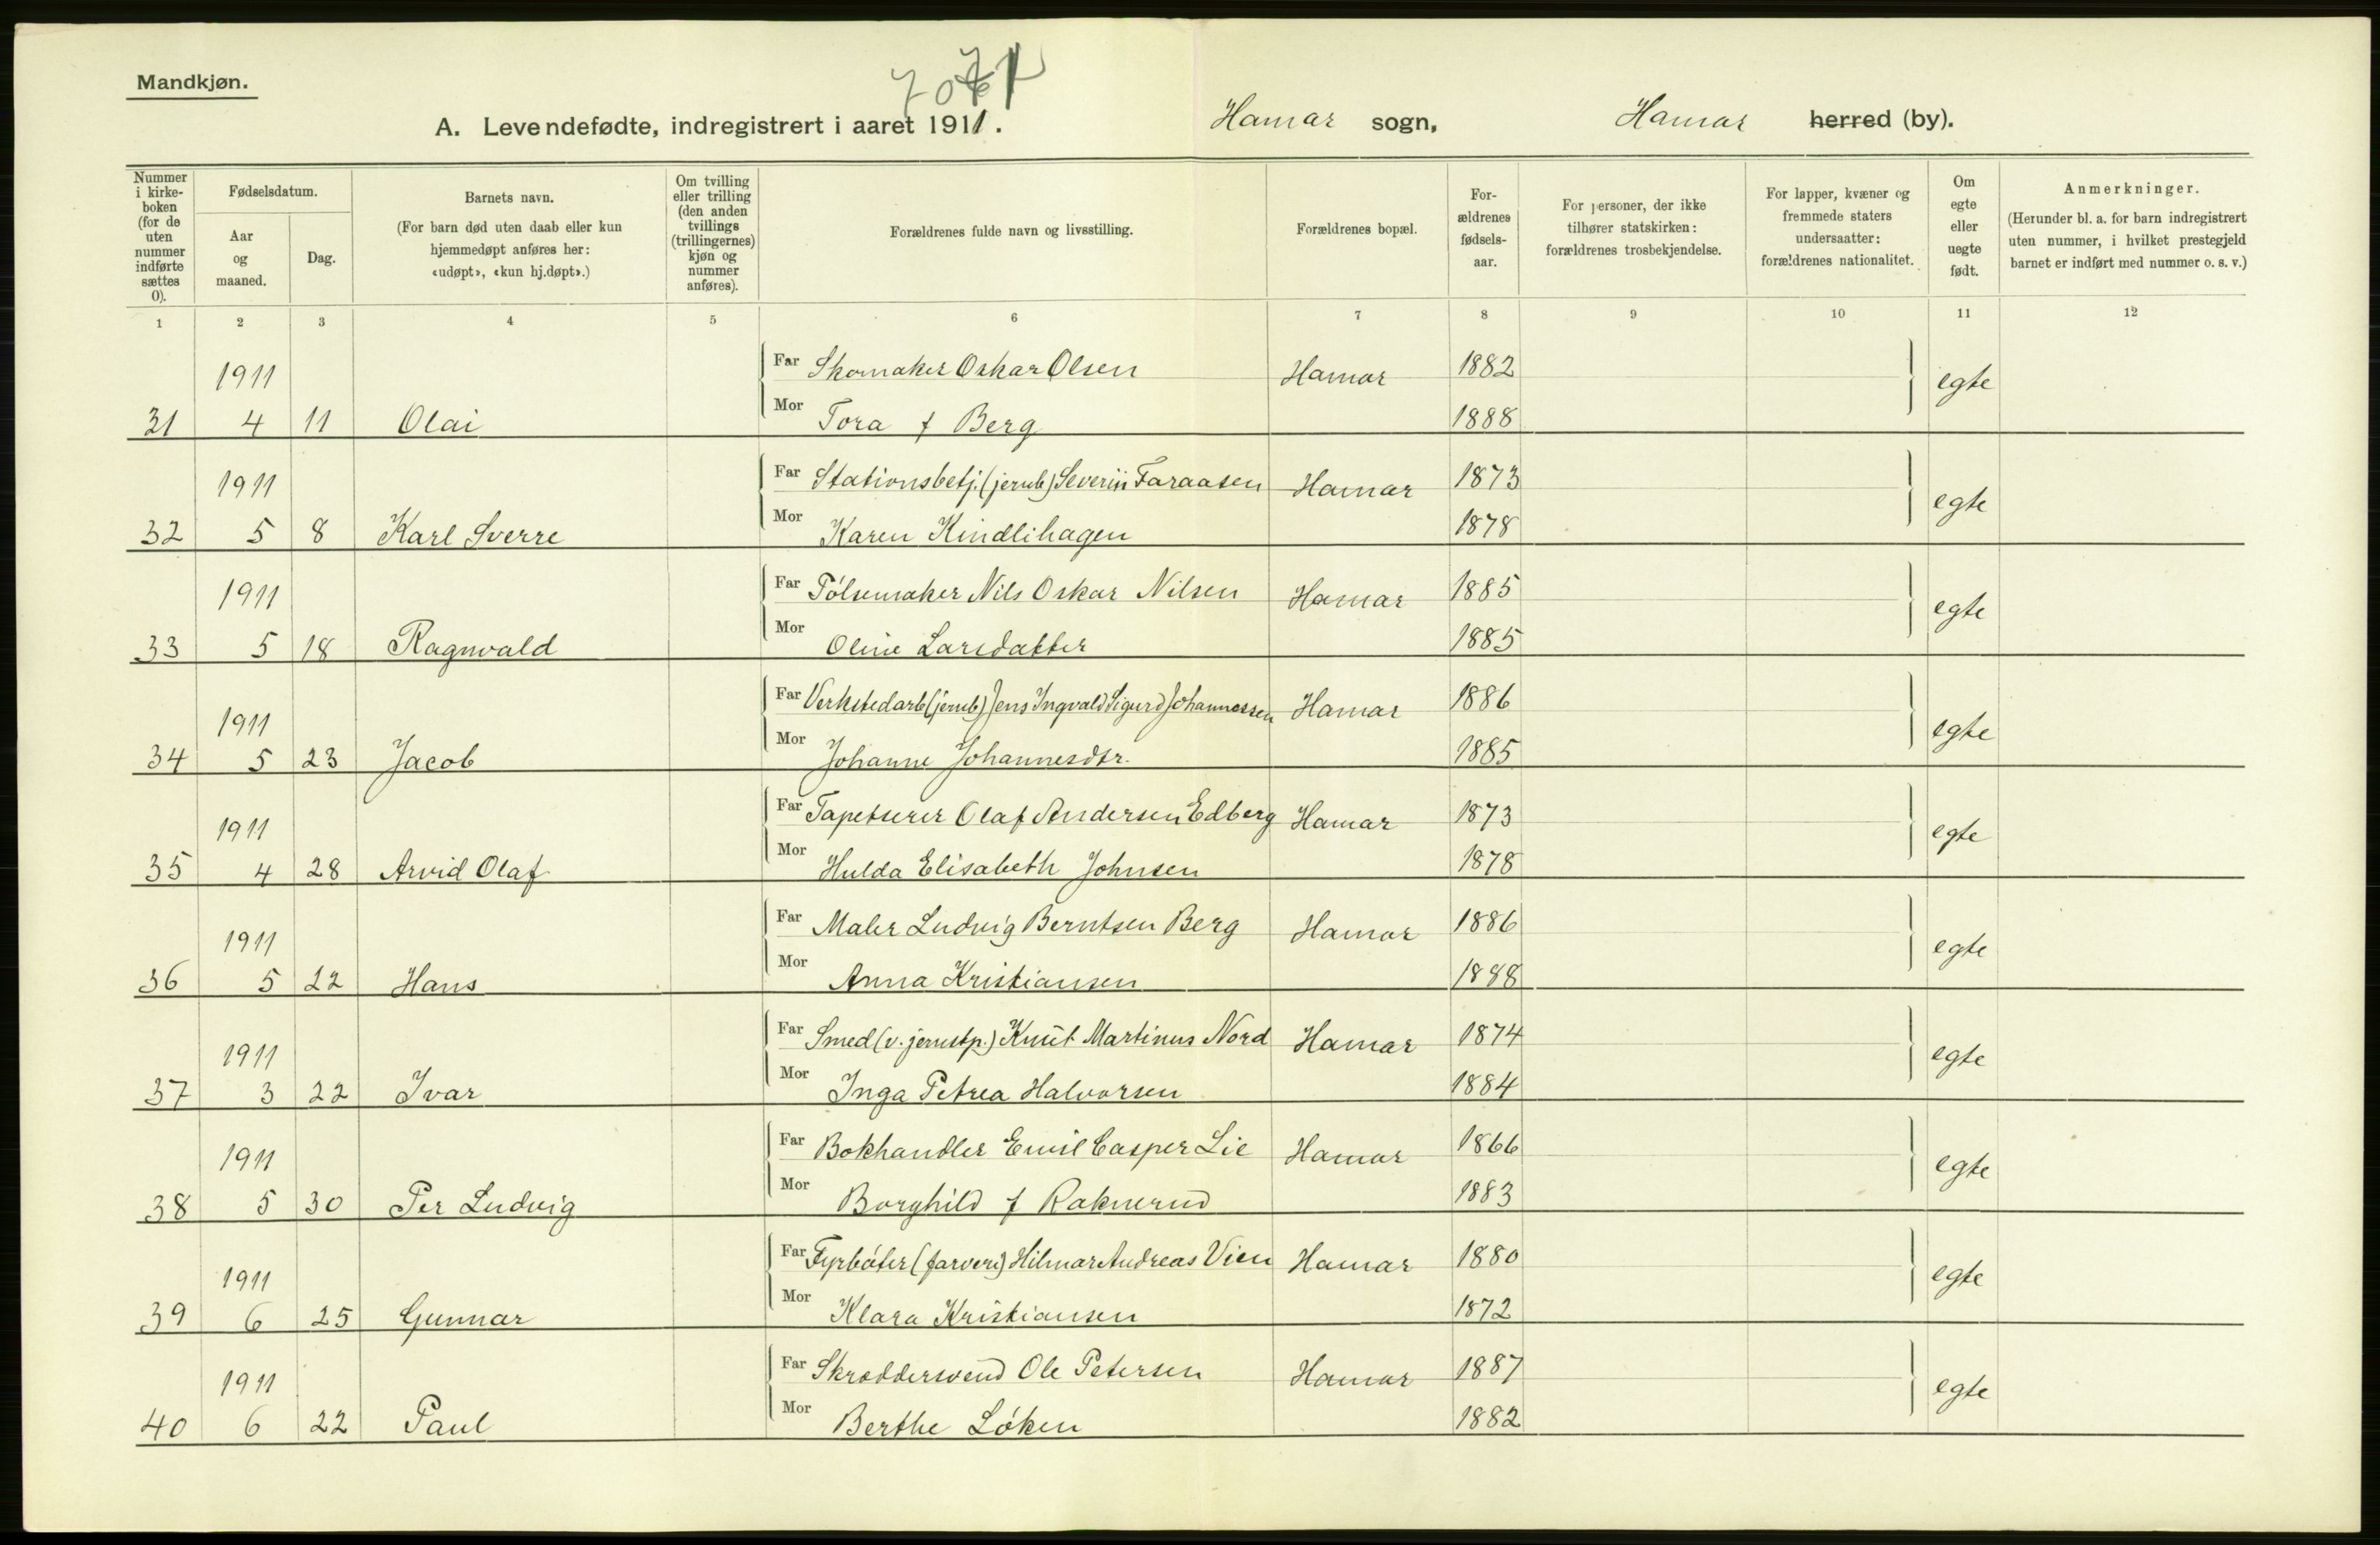 Mandkjøn.
A. Levendefødte, indregistrert i aaret 1911. Hamar sogn, Hamar herred (by).
Nummer i kirkeboken (for de uten nummer indførte sættes 0).
Fødselsdatum.
Aar og maaned.
Dag.
Barnets navn.
(For barn død uten daab eller kun hjemmedøpt anføres her: «udøpt», «kun hj.døpt».)
Om tvilling eller trilling (den anden tvillings (trillingernes) kjøn og nummer anføres).
Forældrenes fulde navn og livsstilling.
Forældrenes bopæl.
Forældrenes fødselsaar.
For personer, der ikke tilhører statskirken: forældrenes trosbekjendelse.
For lapper, kvæner og fremmede staters undersaatter: forældrenes nationalitet.
Om egte eller uegte født.
Anmerkninger.
(Herunder bl. a. for barn indregistrert uten nummer, i hvilket prestegjeld barnet er indført med nummer o. s. v.)
1 2 3 4 5 6 7 8 9 10 11 12
1911 Far Skomaker Oskar Olsen Hamar 1882 egte
31 4 11 Olai Mor Tora f Berg 1888
1911 Far Stationsbetj. (jernb) Severin Faraasen Hamar 1873 egte
32 5 8 Karl Sverre Mor Karen Kindlihagen 1878
1911 Far Pølsemaker Nils Oskar Nilsen Hamar 1885 egte
33 5 18 Ragnvald Mor Oline Larsdatter 1885
1911 Far Verkstedarb (jernb) Jens Ingvald Sigurd Johannessen Hamar 1886 egte
34 5 23 Jacob Mor Johanne Johannesdtr. 1885
1911 Far Tapetserer Olaf Andersen Edberg Hamar 1873 egte
35 4 28 Arvid Olaf Mor Hulda Elisabeth Johnsen 1878
1911 Far Maler Ludvig Berntsen Berg Hamar 1886 egte
36 5 22 Hans Mor Anna Kristiansen 1888
1911 Far Smed (v. jernstp.) Knut Martinus Nord Hamar 1874 egte
37 3 22 Ivar Mor Inga Petrea Halvorsen 1884
1911 Far Bokhandler Emil Casper Lie Hamar 1866 egte
38 5 30 Per Ludvig Mor Borghild f Raknerud 1883
1911 Far Fyrbøter (farveri) Hilmar Andreas Vien Hamar 1880 egte
39 6 25 Gunnar Mor Klara Kristiansen 1872
1911 Far Skræddersvend Ole Petersen Hamar 1887 egte
40 6 22 Paul Mor Berthe Løken 1882